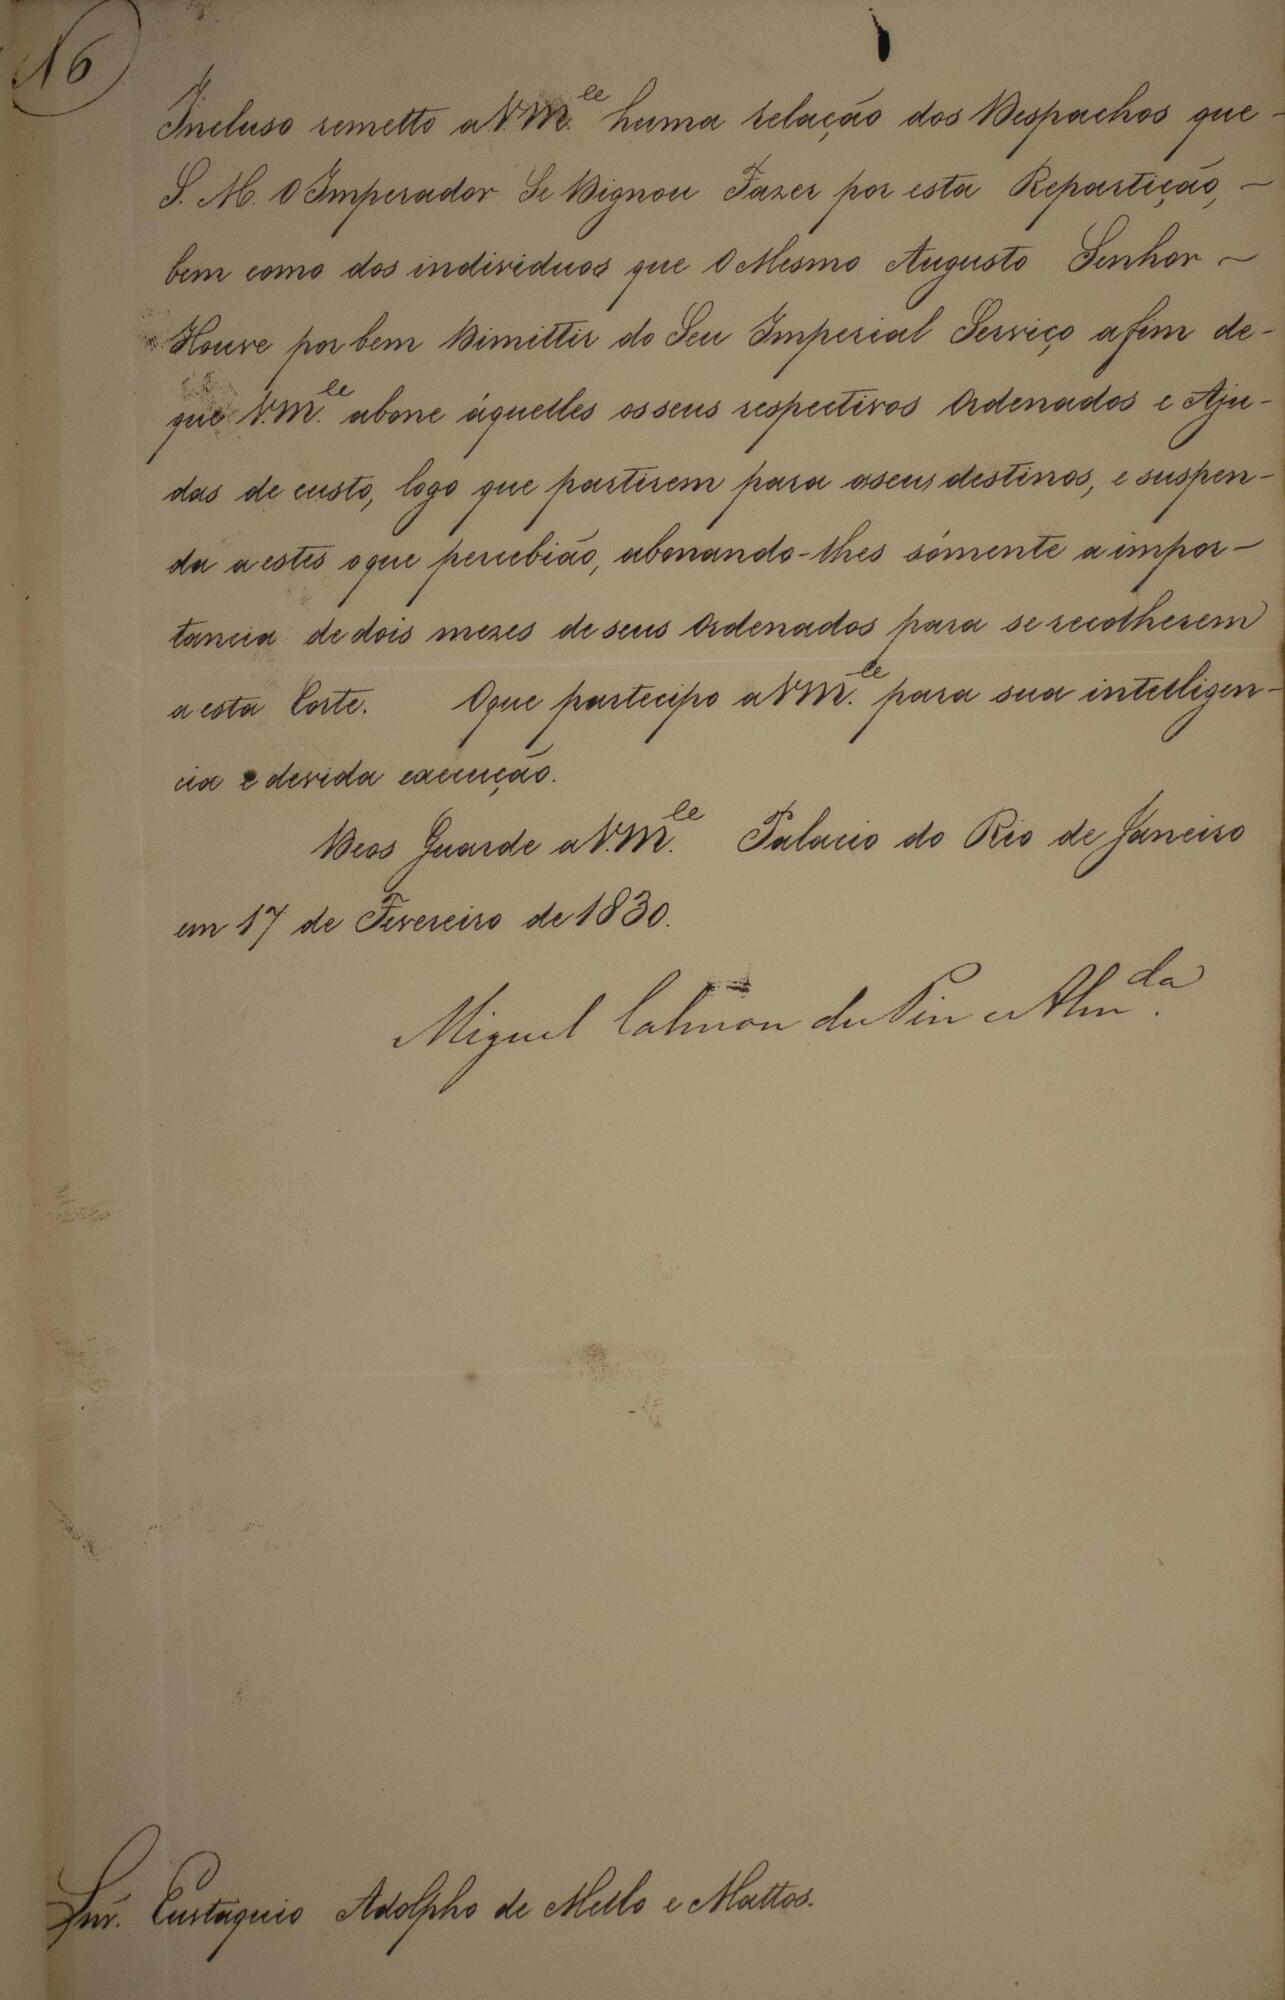 16
Incluso remetto a V.M.ce huma relação dos Despachos que
S. M. O Imperador Se Dignou Fazer por esta Repartição,
bem como dos individuos que O Mesmo Augusto Senhor
Houve por bem Dimittir do Seu Imperial Serviço a fim de
que V.M.ce abone áquelles os seus respectivos Ordenados e Aju-
das de custo, logo que partirem para a seus destinos, e suspen-
da a estes o que percebião, abonando-lhes sómente a impor-
tancia de dois mezes de seus Ordenados para se recolherem
a esta Corte. O que partecipo a V.M.ce para sua intelligen-
cia e devida execução.
Deos Guarde a V.M.ce Palacio do Rio de Janeiro
em 17 de Fevereiro de 1830.
Miguel Calmon du Pin e Alm.da
Snr. Eustaquio Adolpho de Mello e Mattos.